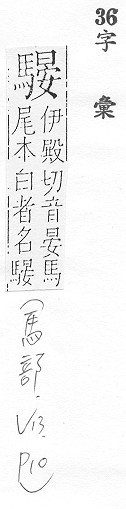 36字彙
騴
伊殿切音晏馬
尾本白者名騴
(馬部.V13.P10)